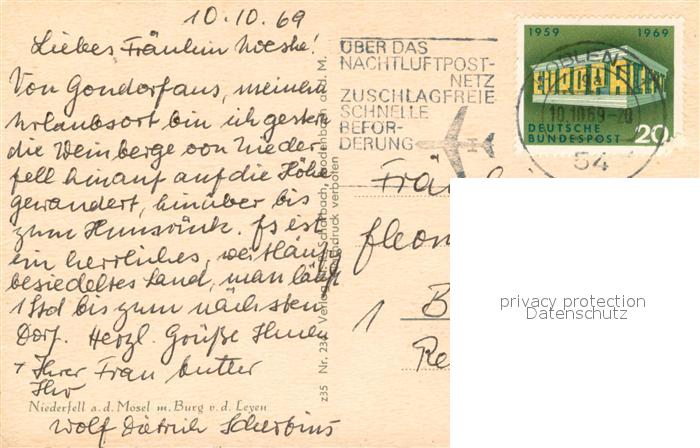 10.10.69
Liebes Fräulein Noeske!
Von Gondorf aus, meinem
Urlaubsort bin ich gestern
die Weinberge von Nieder-
fell hinauf auf die Höhe
gewandert, hinüber bis
zum Hunsrück. Es ist
ein herrliches, weitläufig
besiedeltes Land, man läuft
1 Std bis zum nächsten
Dorf. Herzl. Grüße Ihnen
+ Ihrer Frau Mutter
Ihr
Wolf Dietrich
Niederfell a. d. Mosel m. Burg v. d. Leyen
z35 Nr. 234 Verlag
Schorbach,
a. d. M.
Nachdruck verboten
ÜBER DAS
NACHTLUFTPOST-
NETZ
ZUSCHLAGFREIE
SCHNELLE
BEFÖR-
DERUNG
1959 1969
EUROPA CEPT
DEUTSCHE
BUNDESPOST 20
KOBLENZ
10.10.69-20
54
Frä
1 B
Re
privacy protection
Datenschutz